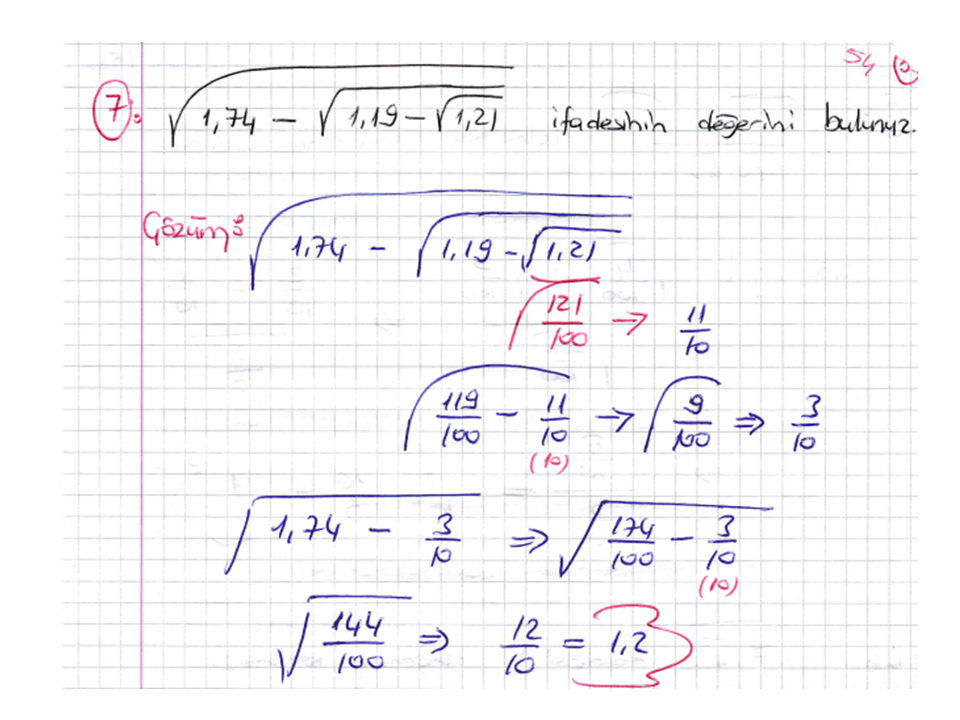 54
7. √(1,74 − √(1,19 − √(1,21))) ifadesinin değerini bulunuz.
Çözüm: √(1,74 − √(1,19 − √(1,21)))
√(121/100) → 11/10
√(119/100 − 11/10) → √(9/100) ⇒ 3/10
(10)
√(1,74 − 3/10) ⇒ √(174/100 − 3/10)
(10)
√(144/100) ⇒ 12/10 = 1,2